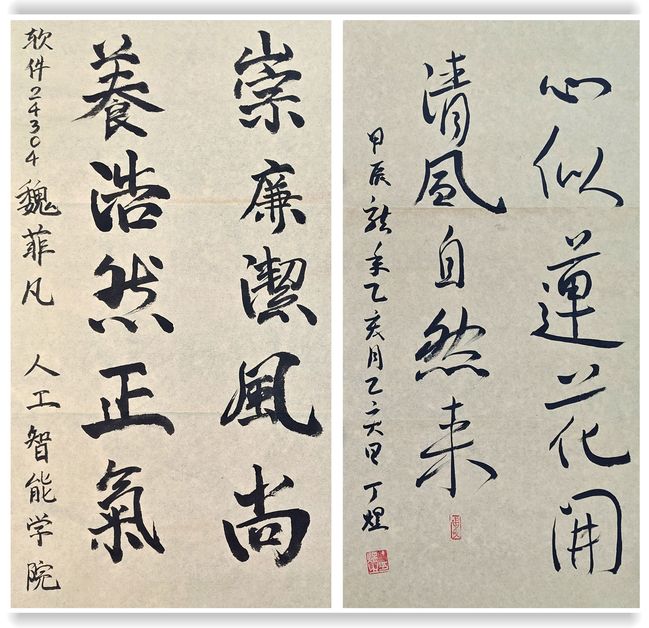 崇廉潔風尚
養浩然正氣
软件24304魏菲凡 人工智能学院
心似蓮花開
清风自然来
甲辰龍年乙亥月乙亥日 丁